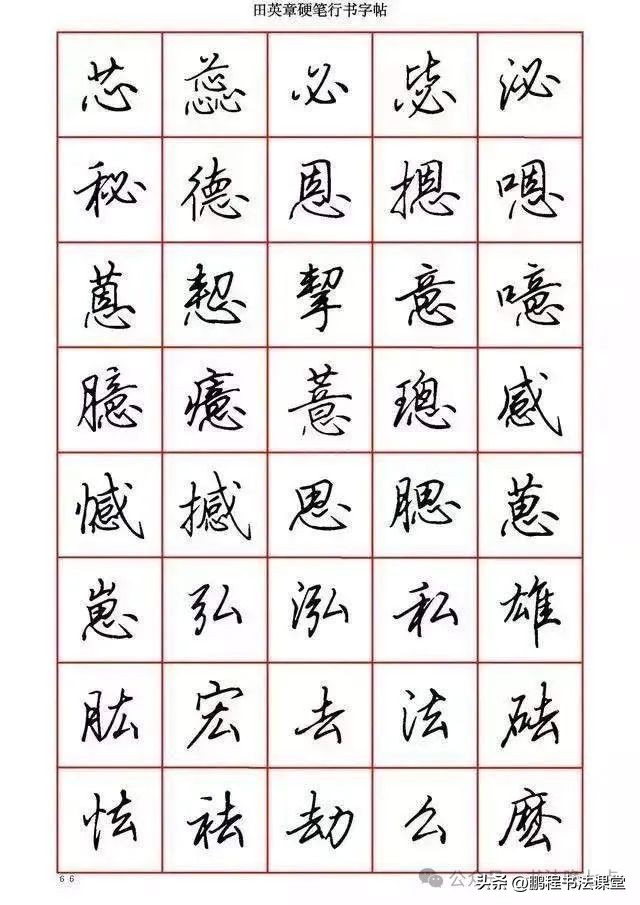 田英章硬笔行书字帖
芯 蕊 必 毖 泌
秘 德 恩 摁 嗯
蒽 恝 挈 意 噫
臆 癔 薏 璁 感
憾 撼 思 腮 葸
崽 弘 泓 私 雄
肱 宏 去 法 砝
怯 祛 劫 么 麽
66
头条 @鹏程书法课堂